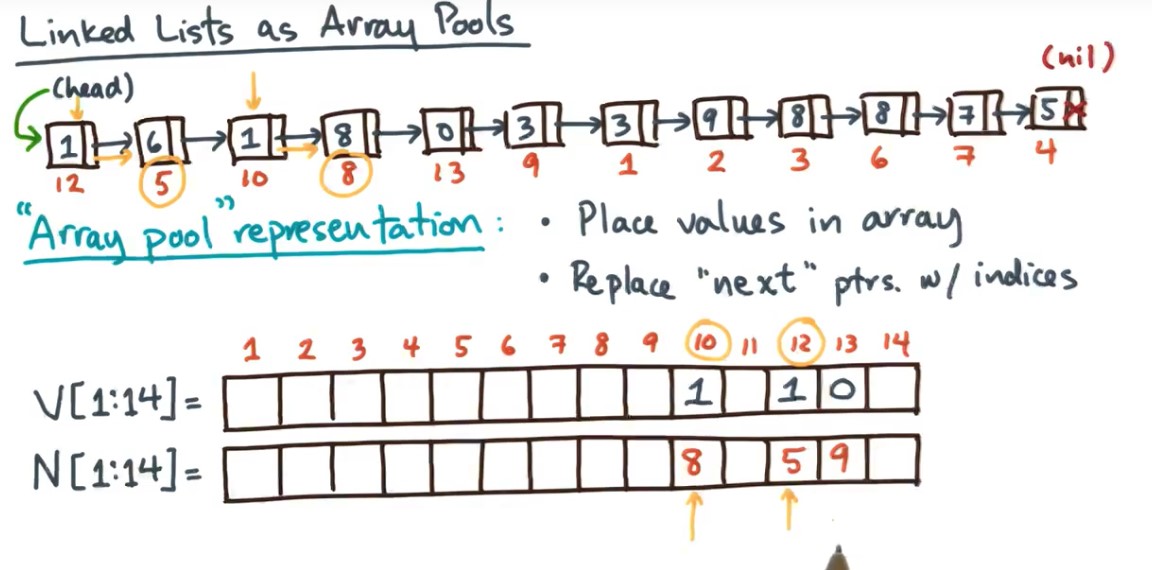 Linked Lists as Array Pools
(nil)
(head)
1 6 1 8 0 3 3 9 8 8 7 5
12 5 10 8 13 9 1 2 3 6 7 4
"Array pool" representation: • Place values in array
• Replace "next" ptrs. w/ indices
1 2 3 4 5 6 7 8 9 10 11 12 13 14
V[1:14]= 1 1 0
N[1:14]= 8 5 9